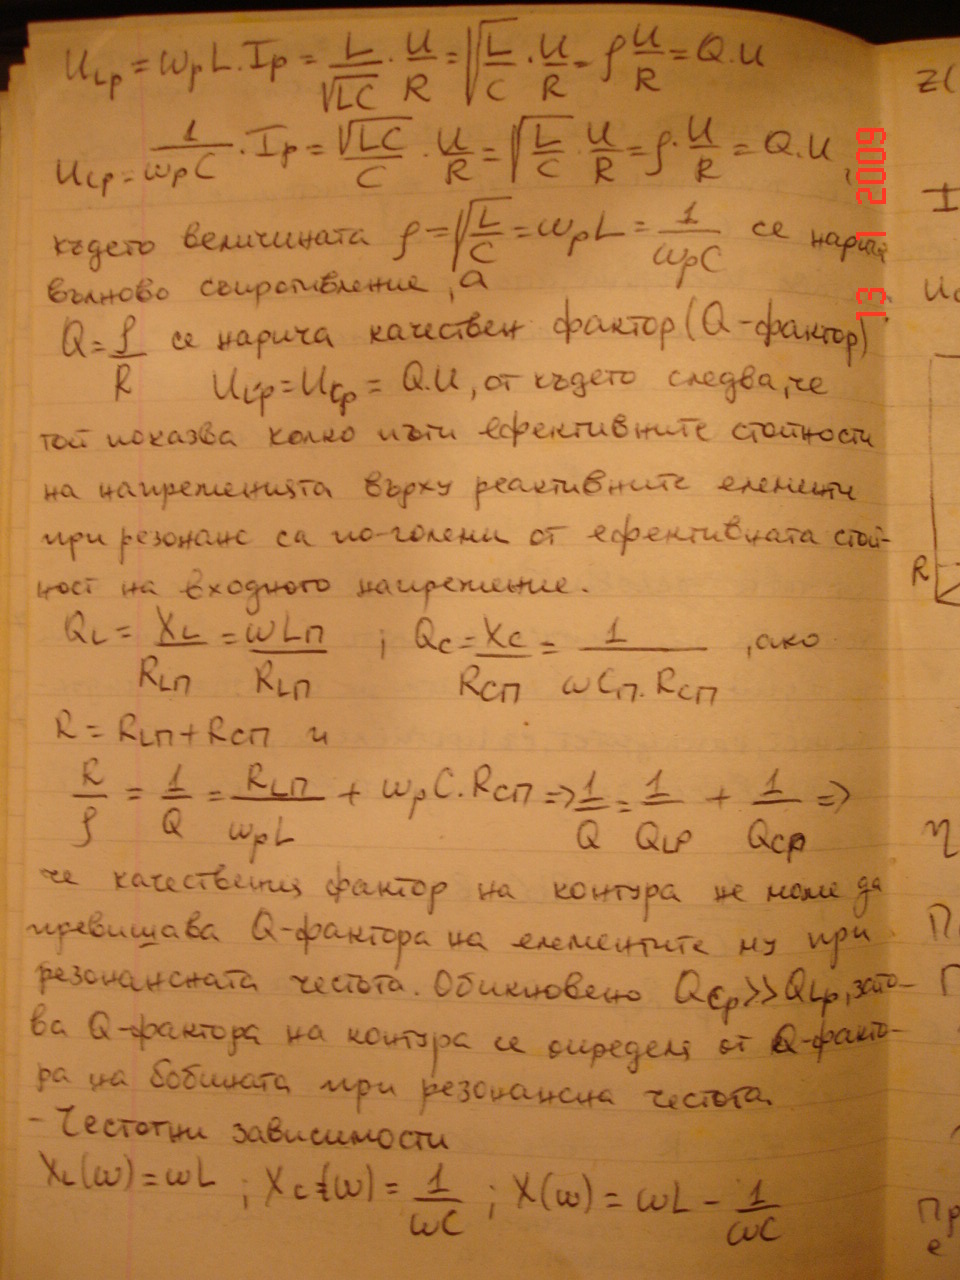 U_Lp = ω_p L . I_p = L/√LC . U/R = √(L/C) . U/R = ρ U/R = Q.U
U_Cp = 1/(ω_p C) . I_p = √LC/C . U/R = √(L/C) . U/R = ρ . U/R = Q.U ,
където величината ρ = √(L/C) = ω_p L = 1/(ω_p C) се нарича
вълново съпротивление, а
Q = ρ/R се нарича качествен фактор (Q-фактор)
U_Lp = U_Cp = Q.U, от където следва, че
той показва колко пъти ефективните стойности
на напреженията върху реактивните елементи
при резонанс са по-големи от ефективната стой-
ност на входното напрежение.
Q_L = X_L/R_LП = ωL_П/R_LП ; Q_C = X_C/R_CП = 1/(ωC_П . R_CП) , ако
R = R_LП + R_CП и
R/ρ = 1/Q = R_LП/(ω_p L) + ω_p C . R_CП => 1/Q = 1/Q_Lp + 1/Q_Cp =>
че качествения фактор на контура не може да
превишава Q-фактора на елементите му при
резонансната честота. Обикновено Q_Cp >> Q_Lp, зато-
ва Q-фактора на контура се определя от Q-факто-
ра на бобината при резонансна честота.
- Честотни зависимости
X_L(ω) = ωL ; X_C = (ω) = 1/(ωC) ; X(ω) = ωL - 1/(ωC)
13 1 2009
Z(
I
R
η
Пр
е